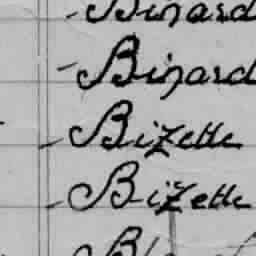 Binard
- Binard
- Bizette
- Bizette